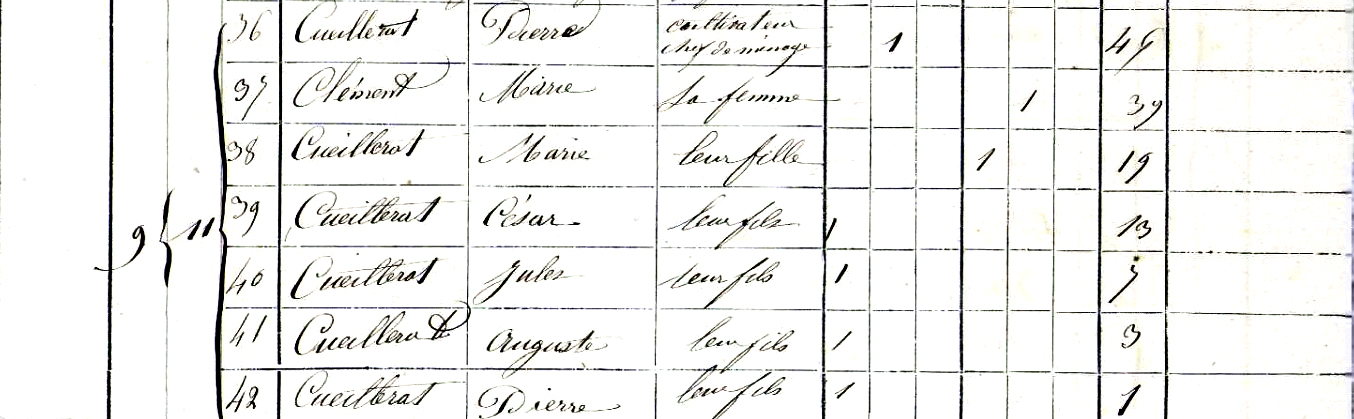 36 Cueillerat Pierre cultivateur
chef de ménage 1
37 Clément Marie sa femme 1 39
38 Cueillerat Marie leur fille 1 19
39 Cueillerat César leur fils 1 13
9 11
40 Cueillerat Jules leur fils 1 7
41 Cueillerat auguste leur fils 1 3
42 Cueillerat Pierre leur fils 1 1